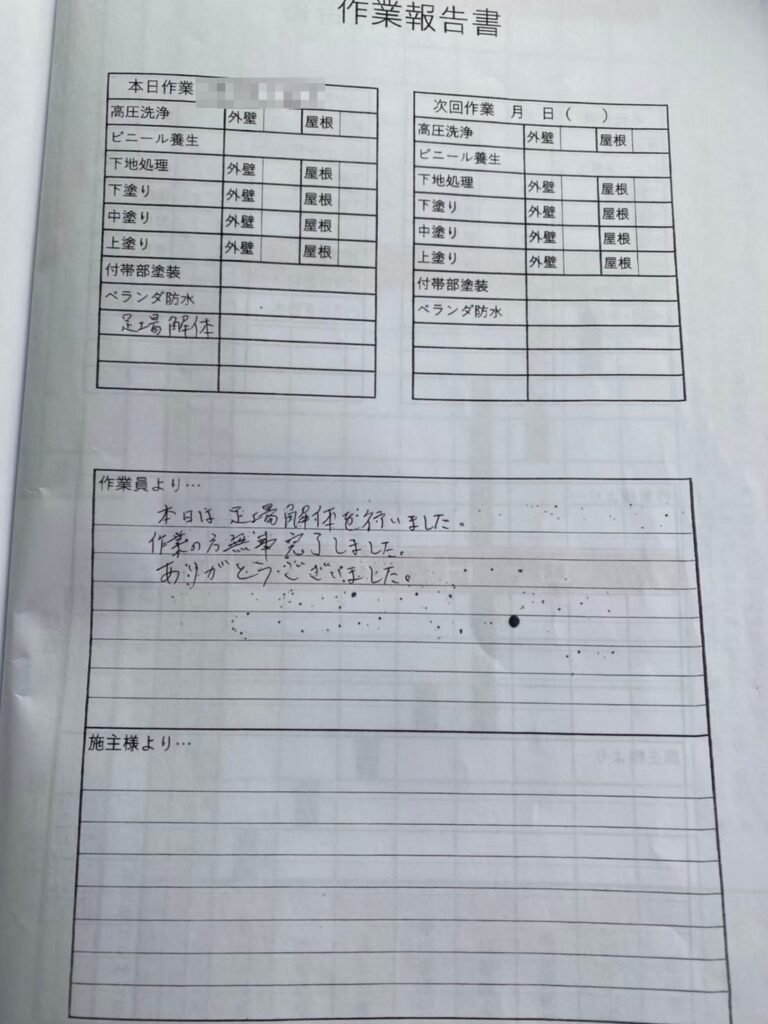 作業報告書
本日作業
高圧洗浄 外壁 屋根
ビニール養生
下地処理 外壁 屋根
下塗り 外壁 屋根
中塗り 外壁 屋根
上塗り 外壁 屋根
付帯部塗装
ベランダ防水
足場解体
次回作業 月 日( )
高圧洗浄 外壁 屋根
ビニール養生
下地処理 外壁 屋根
下塗り 外壁 屋根
中塗り 外壁 屋根
上塗り 外壁 屋根
付帯部塗装
ベランダ防水
作業員より…
本日は足場解体を行いました。
作業の方無事完了しました。
ありがとうございました。
施主様より…